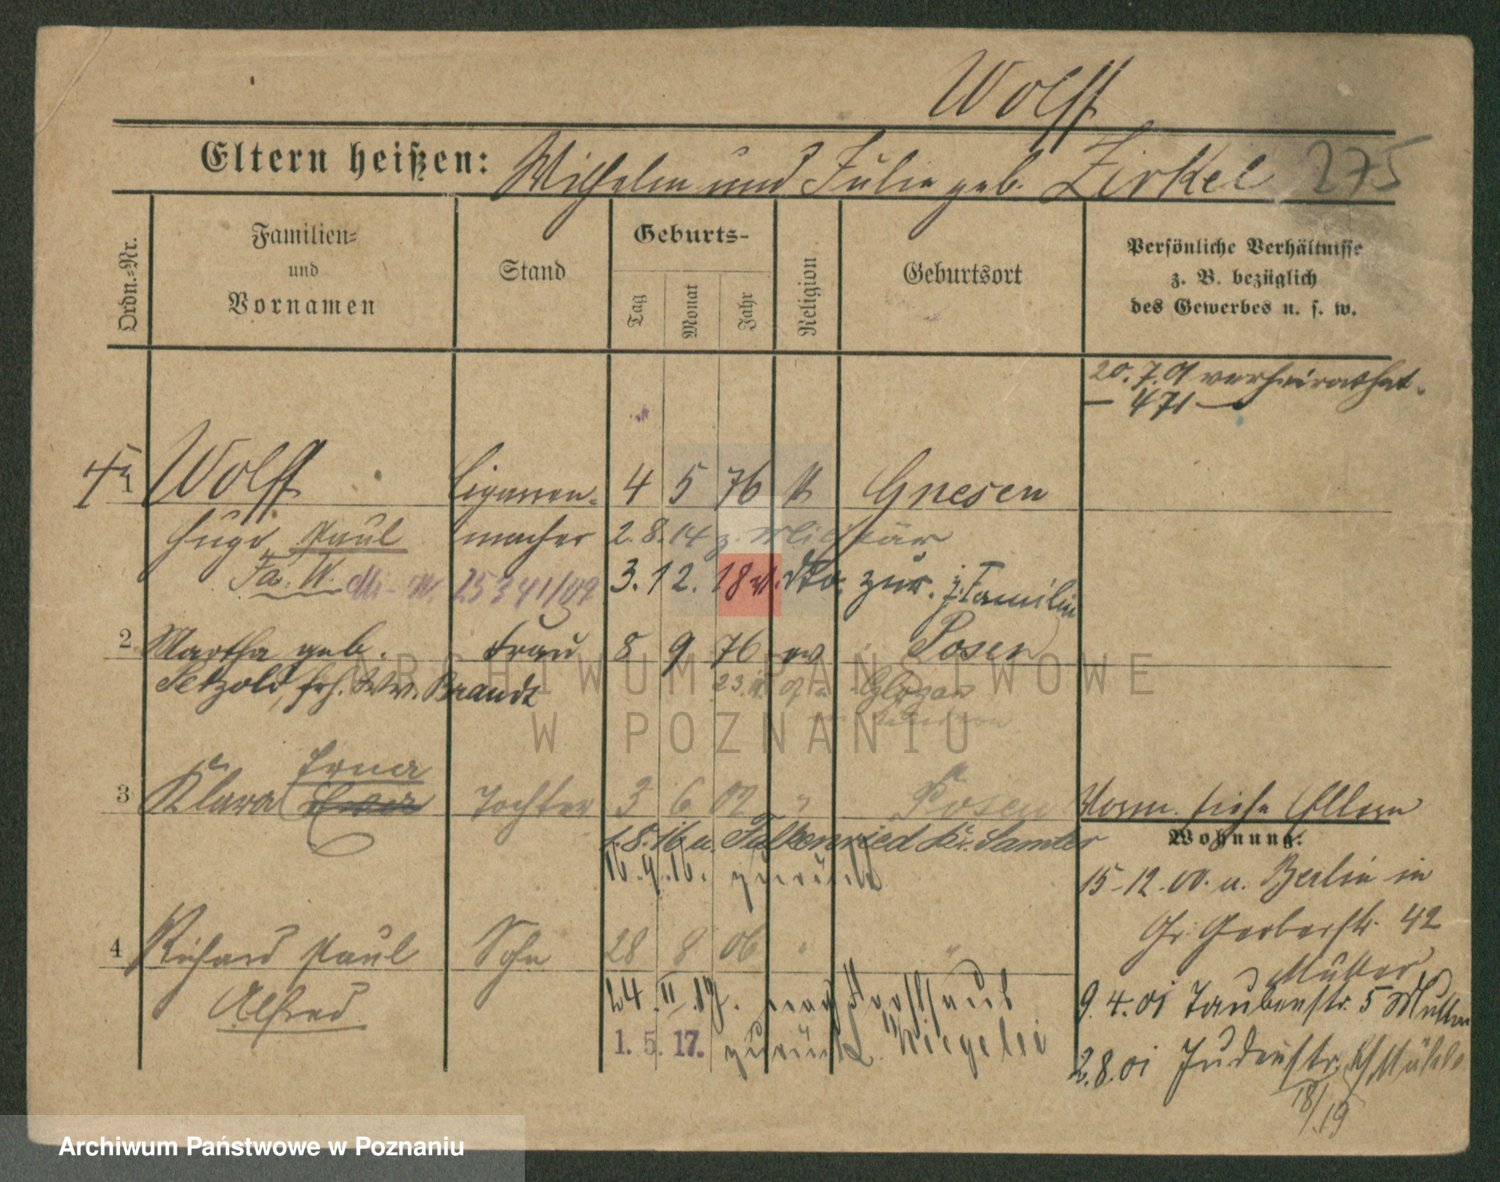 Wolff
Eltern heißen: Wilhelm und Julie geb. Zirkel 275
Ordn.=Nr.
Familien=
und
Vornamen
Stand
Geburts-
Tag
Monat
Jahr
Religion
Geburtsort
Persönliche Verhältnisse
z. B. bezüglich
des Gewerbes u. s. w.
20.7.01 verheirathet.
— 471 —
1 Wolff Cigarren- 4 5 76 Gnesen
Hugo Paul macher 2.8.14 z. Militär
Fa. W. 25341/07 3.12.18 v. dto. zur. z. Familie
2 Martha geb. Frau 8 9 76 ev Posen
Petzold, frh. Ww. Brandt Glogau
Erna
3 Klara Tochter 3 6 02 " Posen
Vorm. siehe Eltern
Wohnung:
1.8.16 n. Falkenried Kr. Samter
16.9.16. zurück
15-12.00. v. Berlin in
Gr. Gerberstr. 42
Mutter
4 Richard Paul Sohn 28 8 06 " "
Alfred
24. II 17. nach
1. 5. 17. zurück
9.4.01 Taubenstr. 5 Mutter
2.8.01 Judenstr.
18/19
ARCHIWUM PAŃSTWOWE
W POZNANIU
Archiwum Państwowe w Poznaniu